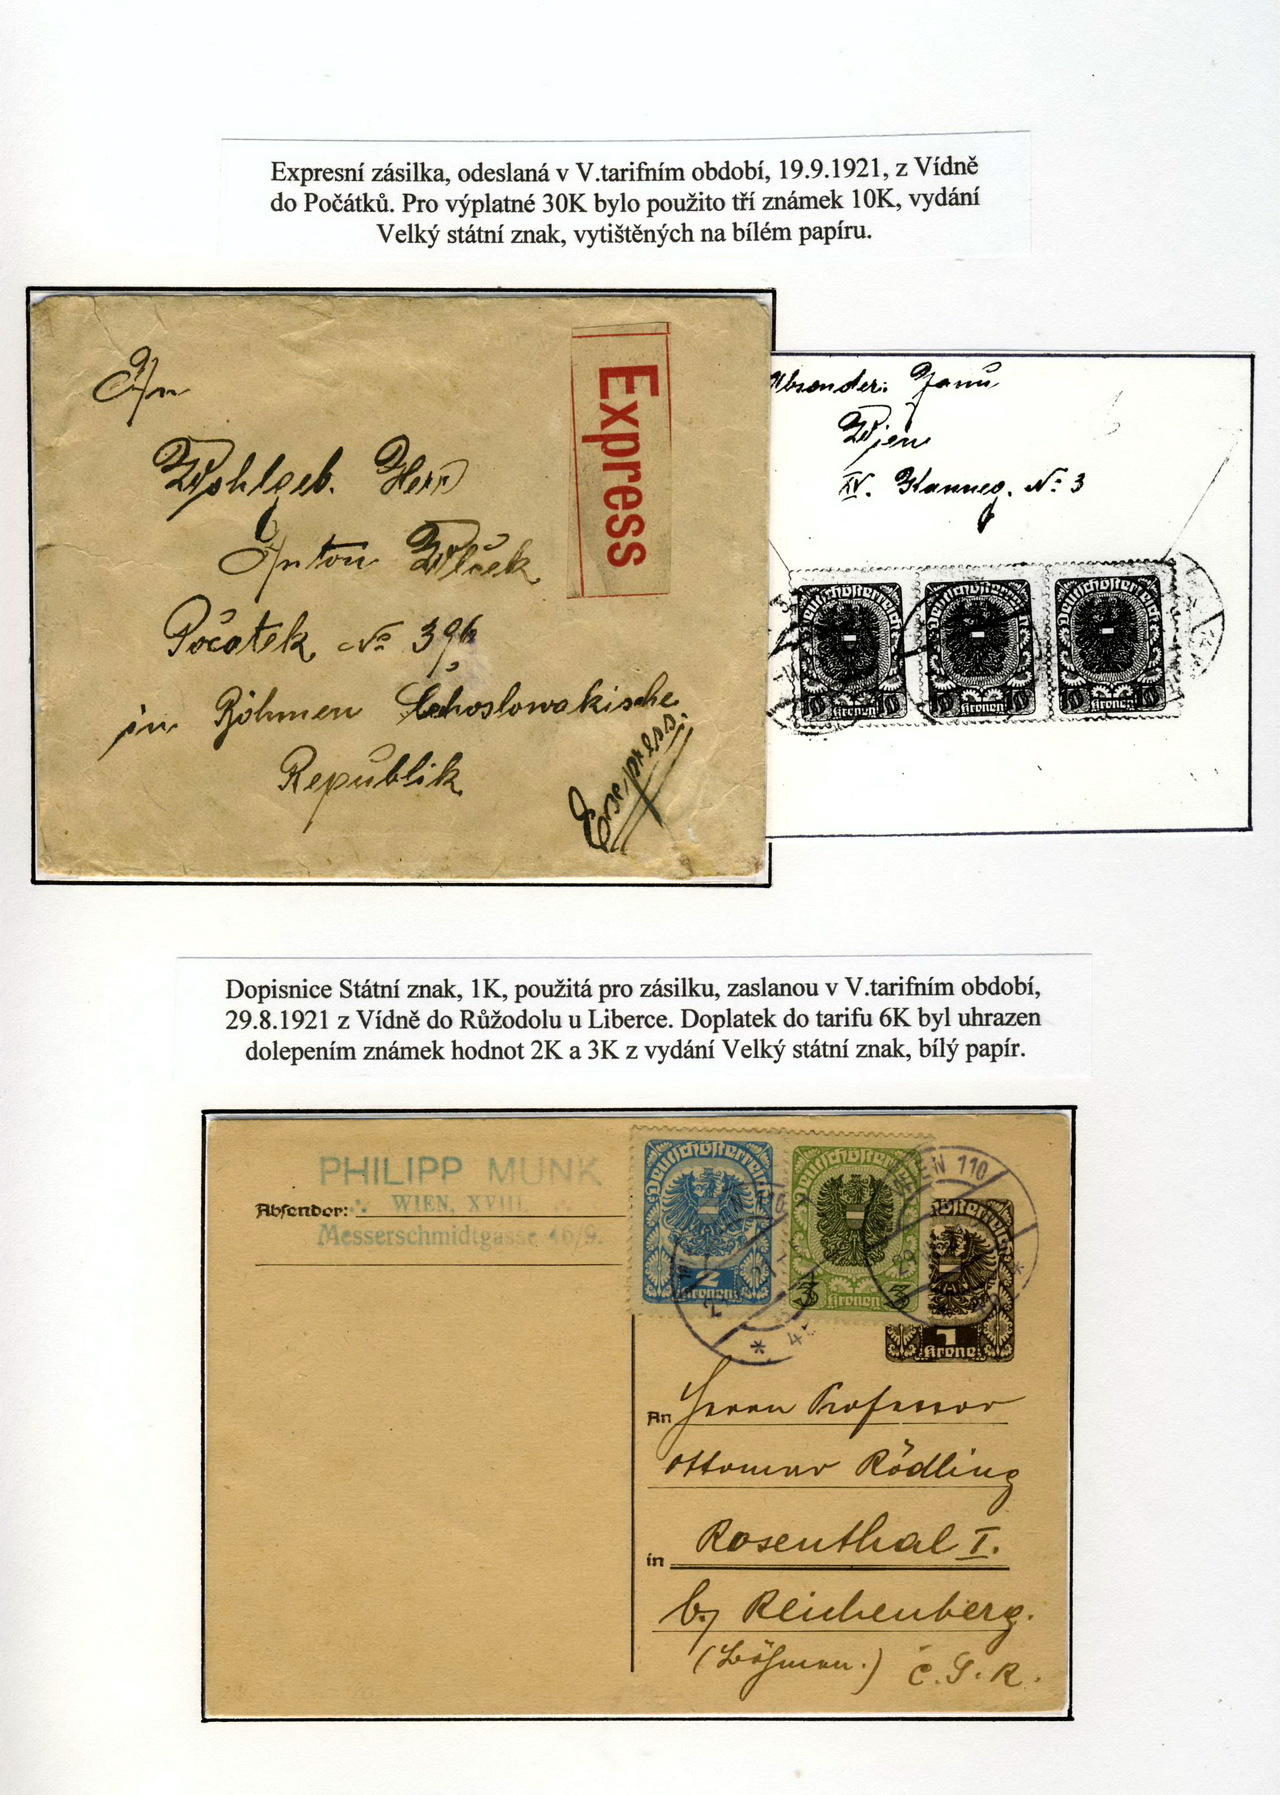 Expresní zásilka, odeslaná v V.tarifním období, 19.9.1921, z Vídně
do Počátků. Pro výplatné 30K bylo použito tří známek 10K, vydání
Velký státní znak, vytištěných na bílém papíru.
An
Wohlgeb. Herr
Anton Wlček
Počatek No 396
in Böhmen Čechoslowakische
Republik
Express
Express
Absender: Janu
Wien
No 3
Deutschösterreich
10 Kronen 10
Deutschösterreich
10 Kronen 10
Deutschösterreich
10 Kronen 10
Dopisnice Státní znak, 1K, použitá pro zásilku, zaslanou v V.tarifním období,
29.8.1921 z Vídně do Růžodolu u Liberce. Doplatek do tarifu 6K byl uhrazen
dolepením známek hodnot 2K a 3K z vydání Velký státní znak, bílý papír.
PHILIPP MUNK
WIEN, XVIII.
Messerschmidtgasse 46/9.
Absender:
Deutschösterreich
2
Kronen
Deutschösterreich
3 Kronen 3
WIEN 110
1
Krone
An Herrn Professor
Ottomar Rödling
in Rosenthal I.
b/ Reichenberg.
(Böhmen.) Č.S.R.